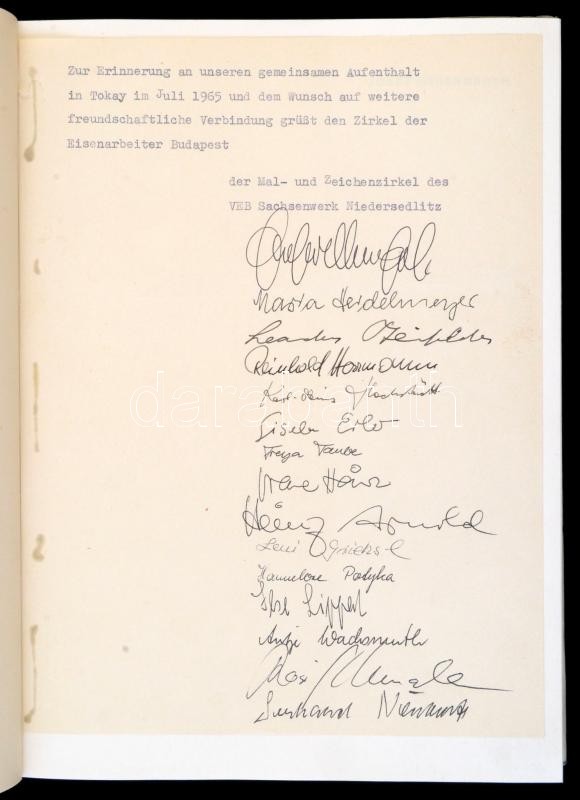 Zur Erinnerung an unseren gemeinsamen Aufenthalt
in Tokay im Juli 1965 und dem Wunsch auf weitere
freundschaftliche Verbindung grüßt den Zirkel der
Eisenarbeiter Budapest
der Mal- und Zeichenzirkel des
VEB Sachsenwerk Niedersedlitz
Maria Heidelmeyer
Reinhold Hormann
Karl-Heinz
Gisela
Freya Taube
Heinz Arnold
Leni
Hannelore Potyka
Ilse Lippert
Antje Wachsmuth
darabanth